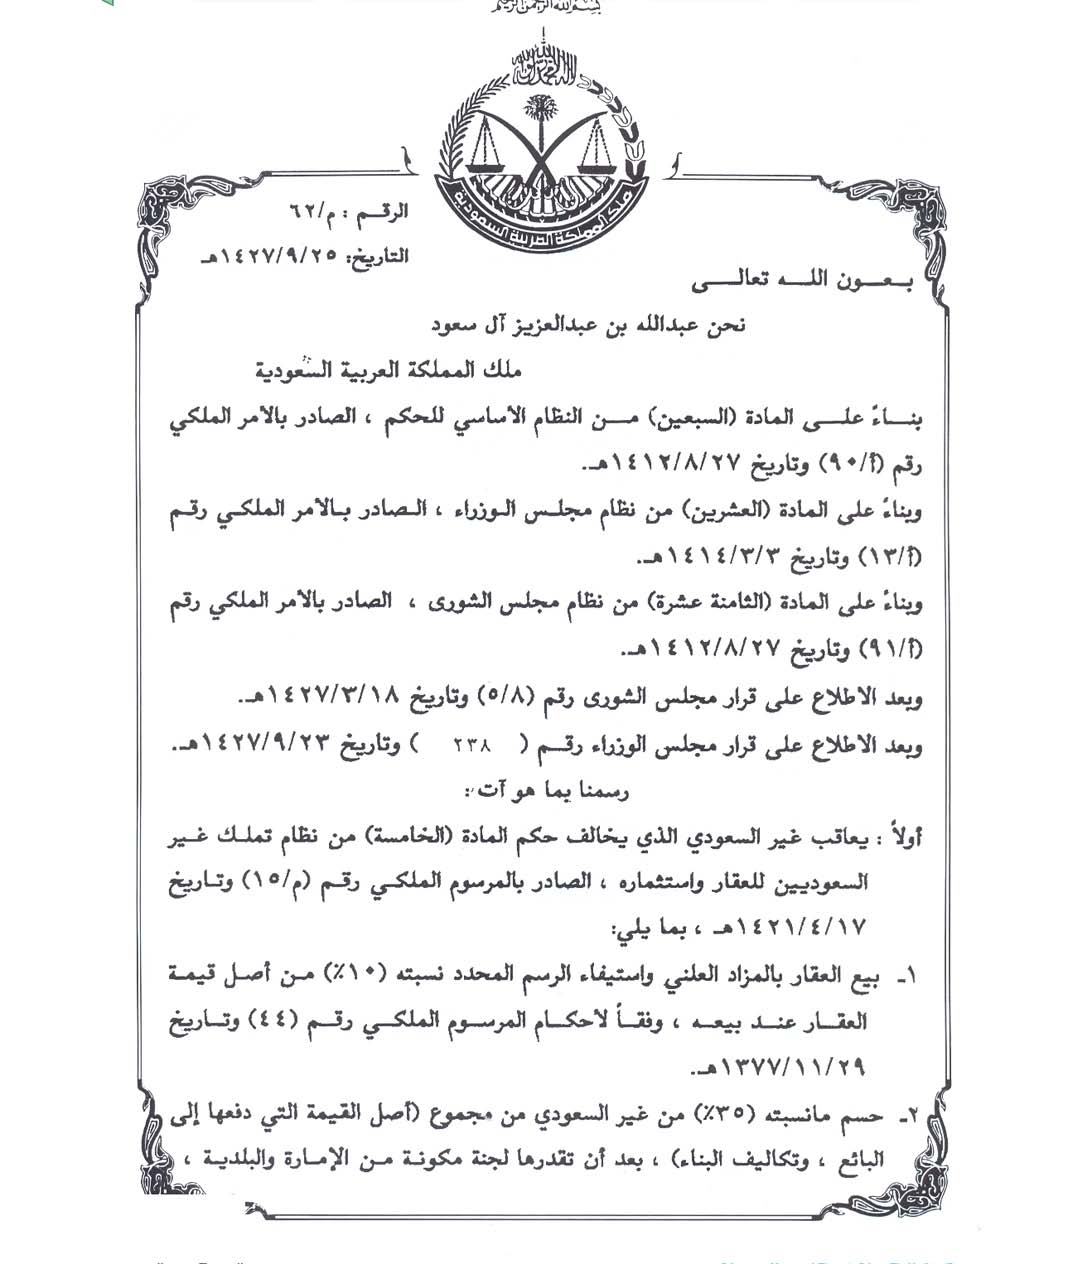 بسم الله الرحمن الرحيم
ملك المملكة العربية السعودية
الرقـم : م/٦٢
التاريخ: ١٤٢٧/٩/٢٥هـ
بـعـــون اللـــه تعالـــى
نحن عبدالله بن عبدالعزيز آل سعود
ملك المملكة العربية السعودية
بنــاءً علــى المادة (السبعين) مــن النظام الأساسي للحكم ، الصادر بالأمر الملكي
رقم (أ/٩٠) وتاريخ ١٤١٢/٨/٢٧هـ.
وبناءً على المادة (العشرين) من نظام مجلـس الـوزراء ، الـصادر بـالأمر الملكـي رقـم
(أ/١٣) وتاريخ ١٤١٤/٣/٣هـ.
وبناءً على المادة (الثامنة عشرة) من نظام مجلس الشورى ، الصادر بالأمر الملكي رقم
(أ/٩١) وتاريخ ١٤١٢/٨/٢٧هـ.
وبعد الاطلاع على قرار مجلس الشورى رقم (٥/٨) وتاريخ ١٤٢٧/٣/١٨هـ.
وبعد الاطلاع على قرار مجلس الوزراء رقـم ( ٢٣٨ ) وتاريخ ١٤٢٧/٩/٢٣هـ.
رسمنا بما هو آت :
أولاً : يعاقب غير السعودي الذي يخالف حكم المادة (الخامسة) من نظام تملـك غـير
السعوديـين للعقار واستثماره ، الصادر بالمرسوم الملكي رقـم (م/١٥) وتـاريخ
١٤٢١/٤/١٧هـ ، بما يلي:
١ـ بيع العقار بالمزاد العلني واستيفاء الرسم المحدد نسبته (١٠٪) مـن أصـل قيمـة
العقـار عنـد بيعـه ، وفقـاً لأحكـام المرسـوم الملكـي رقـم (٤٤) وتـاريخ
١٣٧٧/١١/٢٩هـ.
٢ـ حسم مانسبته (٣٥٪) من غير السعودي من مجموع (أصل القيمة التي دفعها إلى
البائع ، وتكاليف البناء) ، بعد أن تقدرها لجنة مكونـة مـن الإمـارة والبلديـة ،